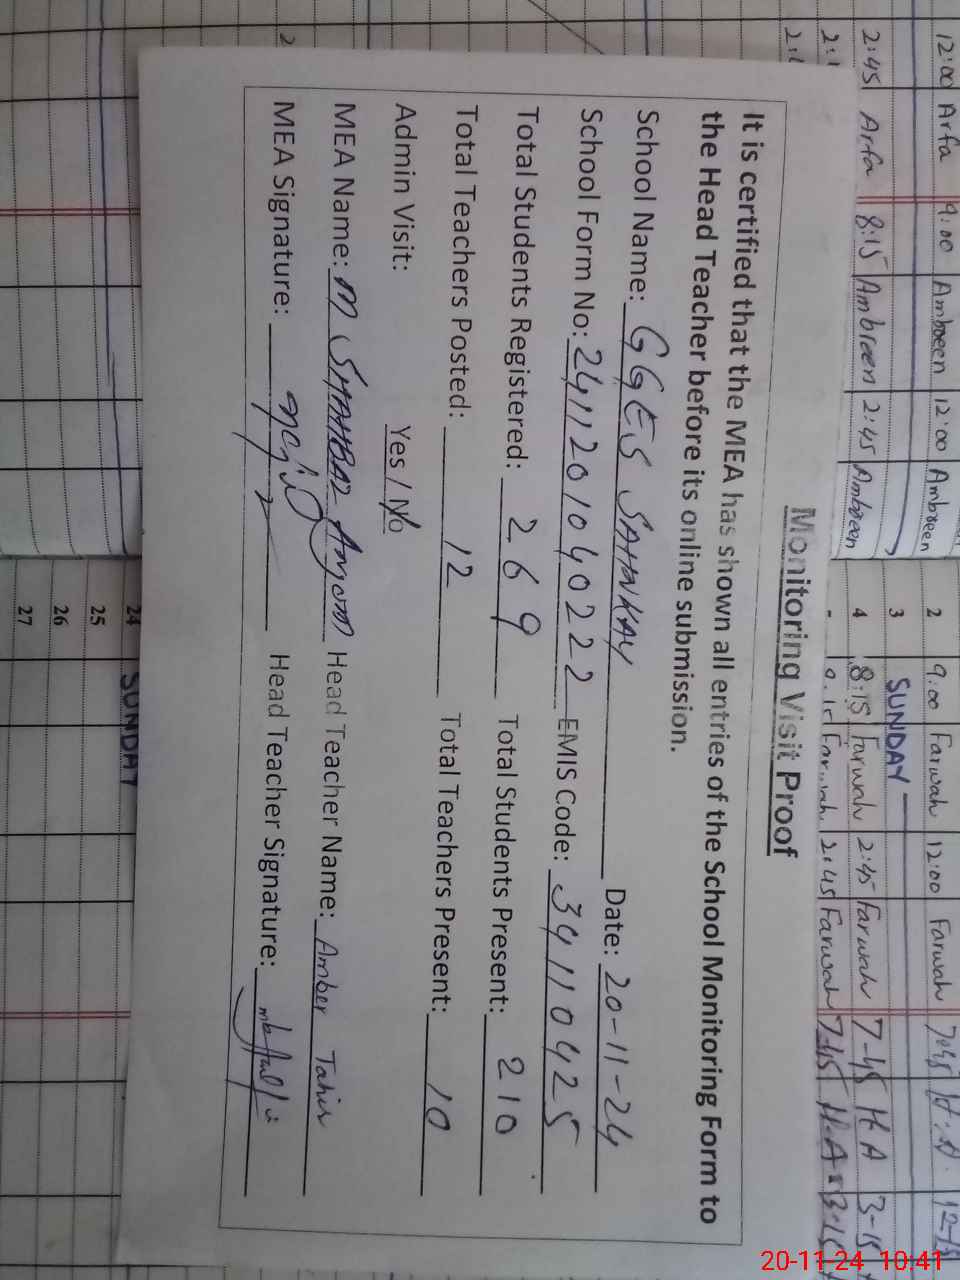 Monitoring Visit Proof
It is certified that the MEA has shown all entries of the School Monitoring Form to
the Head Teacher before its online submission.
School Name: GGES SAHNKAY Date: 20-11-24
School Form No: 24112010402 22 EMIS Code: 34110425
Total Students Registered: 269 Total Students Present: 210
Total Teachers Posted: 12 Total Teachers Present: 10
Admin Visit: Yes / No
MEA Name: M SHAHBAZ Anjum Head Teacher Name: Amber Tahir
MEA Signature: Head Teacher Signature:
12:00 Arfa 9:00 Ambreen 12:00 Ambreen
2:45 Arfa 8:15 Ambreen 2:45 Ambreen
2 9:00 Farwah 12:00 Farwah
3 SUNDAY
4 8:15 Farwah 2:45 Farwah 7-45 H.A 3-15
Farwah 2:45 Farwah 7-45 H.A
24 SUNDAY
25
26
27
20-11-24 10:41